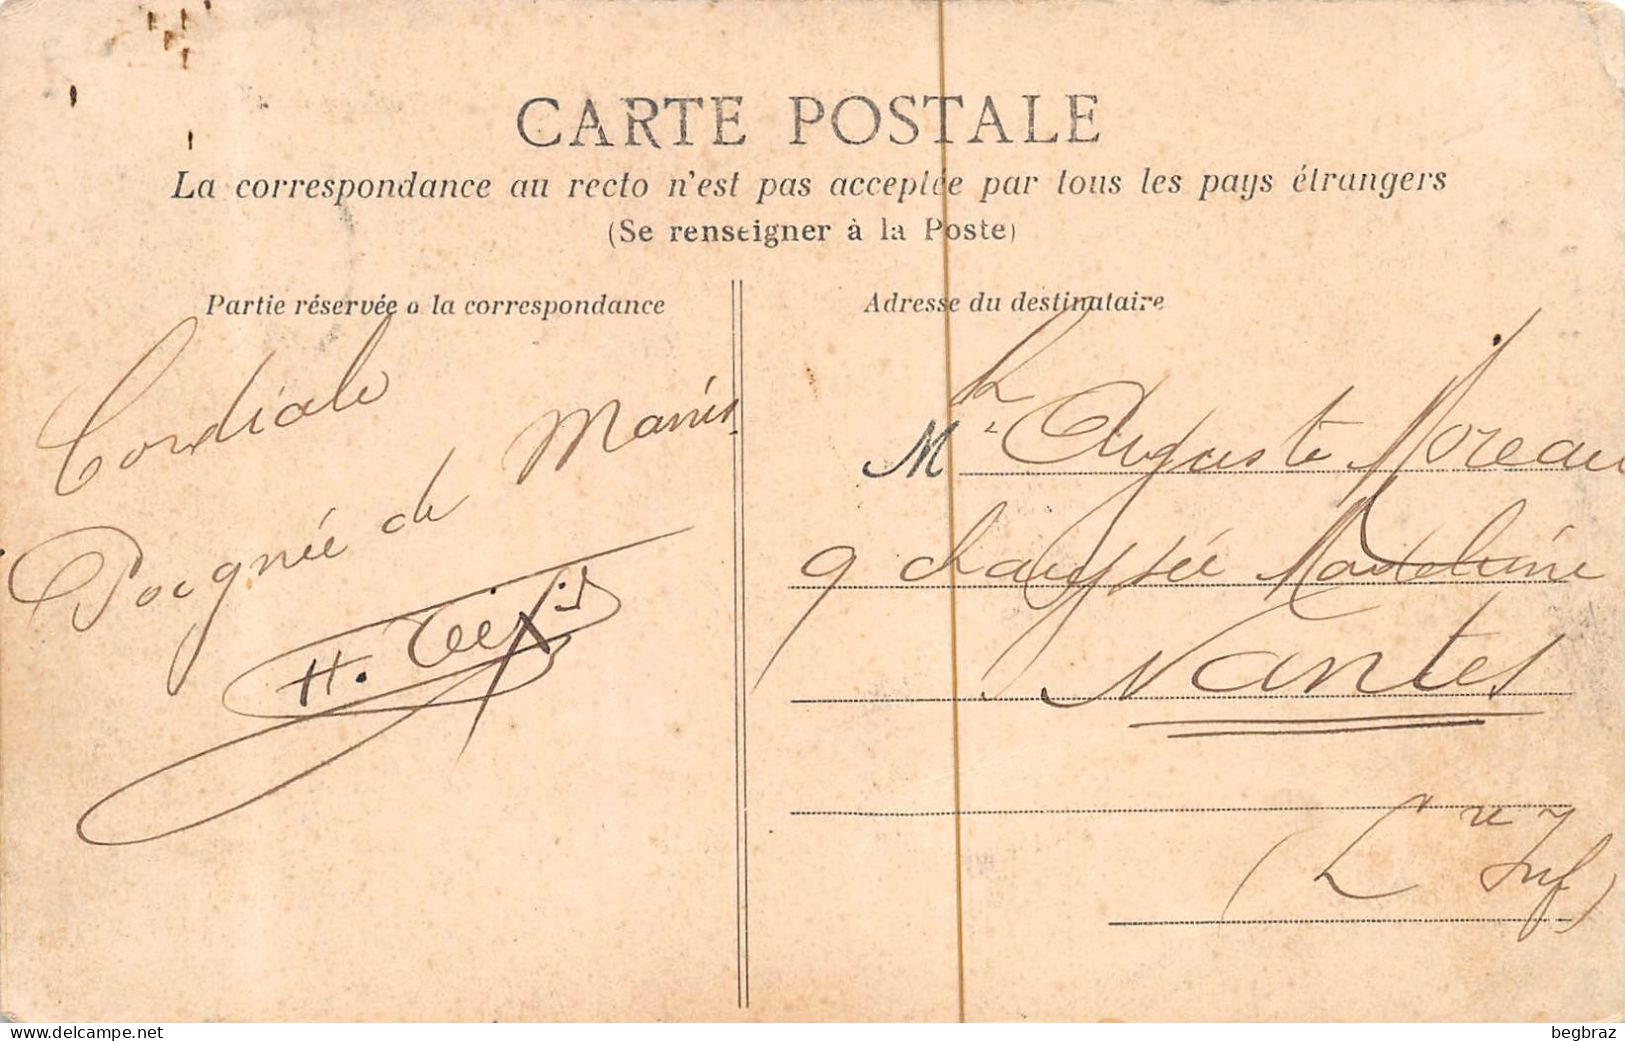 CARTE POSTALE
La correspondance au recto n'est pas acceptée par tous les pays étrangers
(Se renseigner à la Poste)
Partie réservée a la correspondance
Cordiale
Poignée de Mains
H.
Adresse du destinataire
M Auguste Moreau
9 chaussée Madeleine
Nantes
(Lre Inf)
www.delcampe.net
begbraz